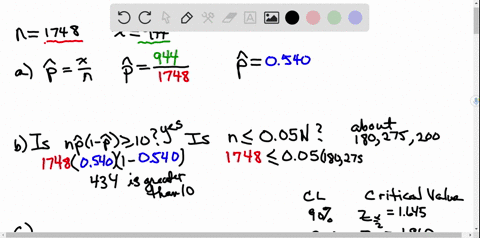 n = 1748
a) p̂ = x/n p̂ = 944/1748 p̂ = 0.540
b) Is np̂(1-p̂) ≥ 10? yes Is n ≤ 0.05N? about 180,275,200
1748(0.540)(1-0.540) 1748 ≤ 0.05(180,275
434 is greater than 10
CL Critical Value
90% Z α/2 = 1.645